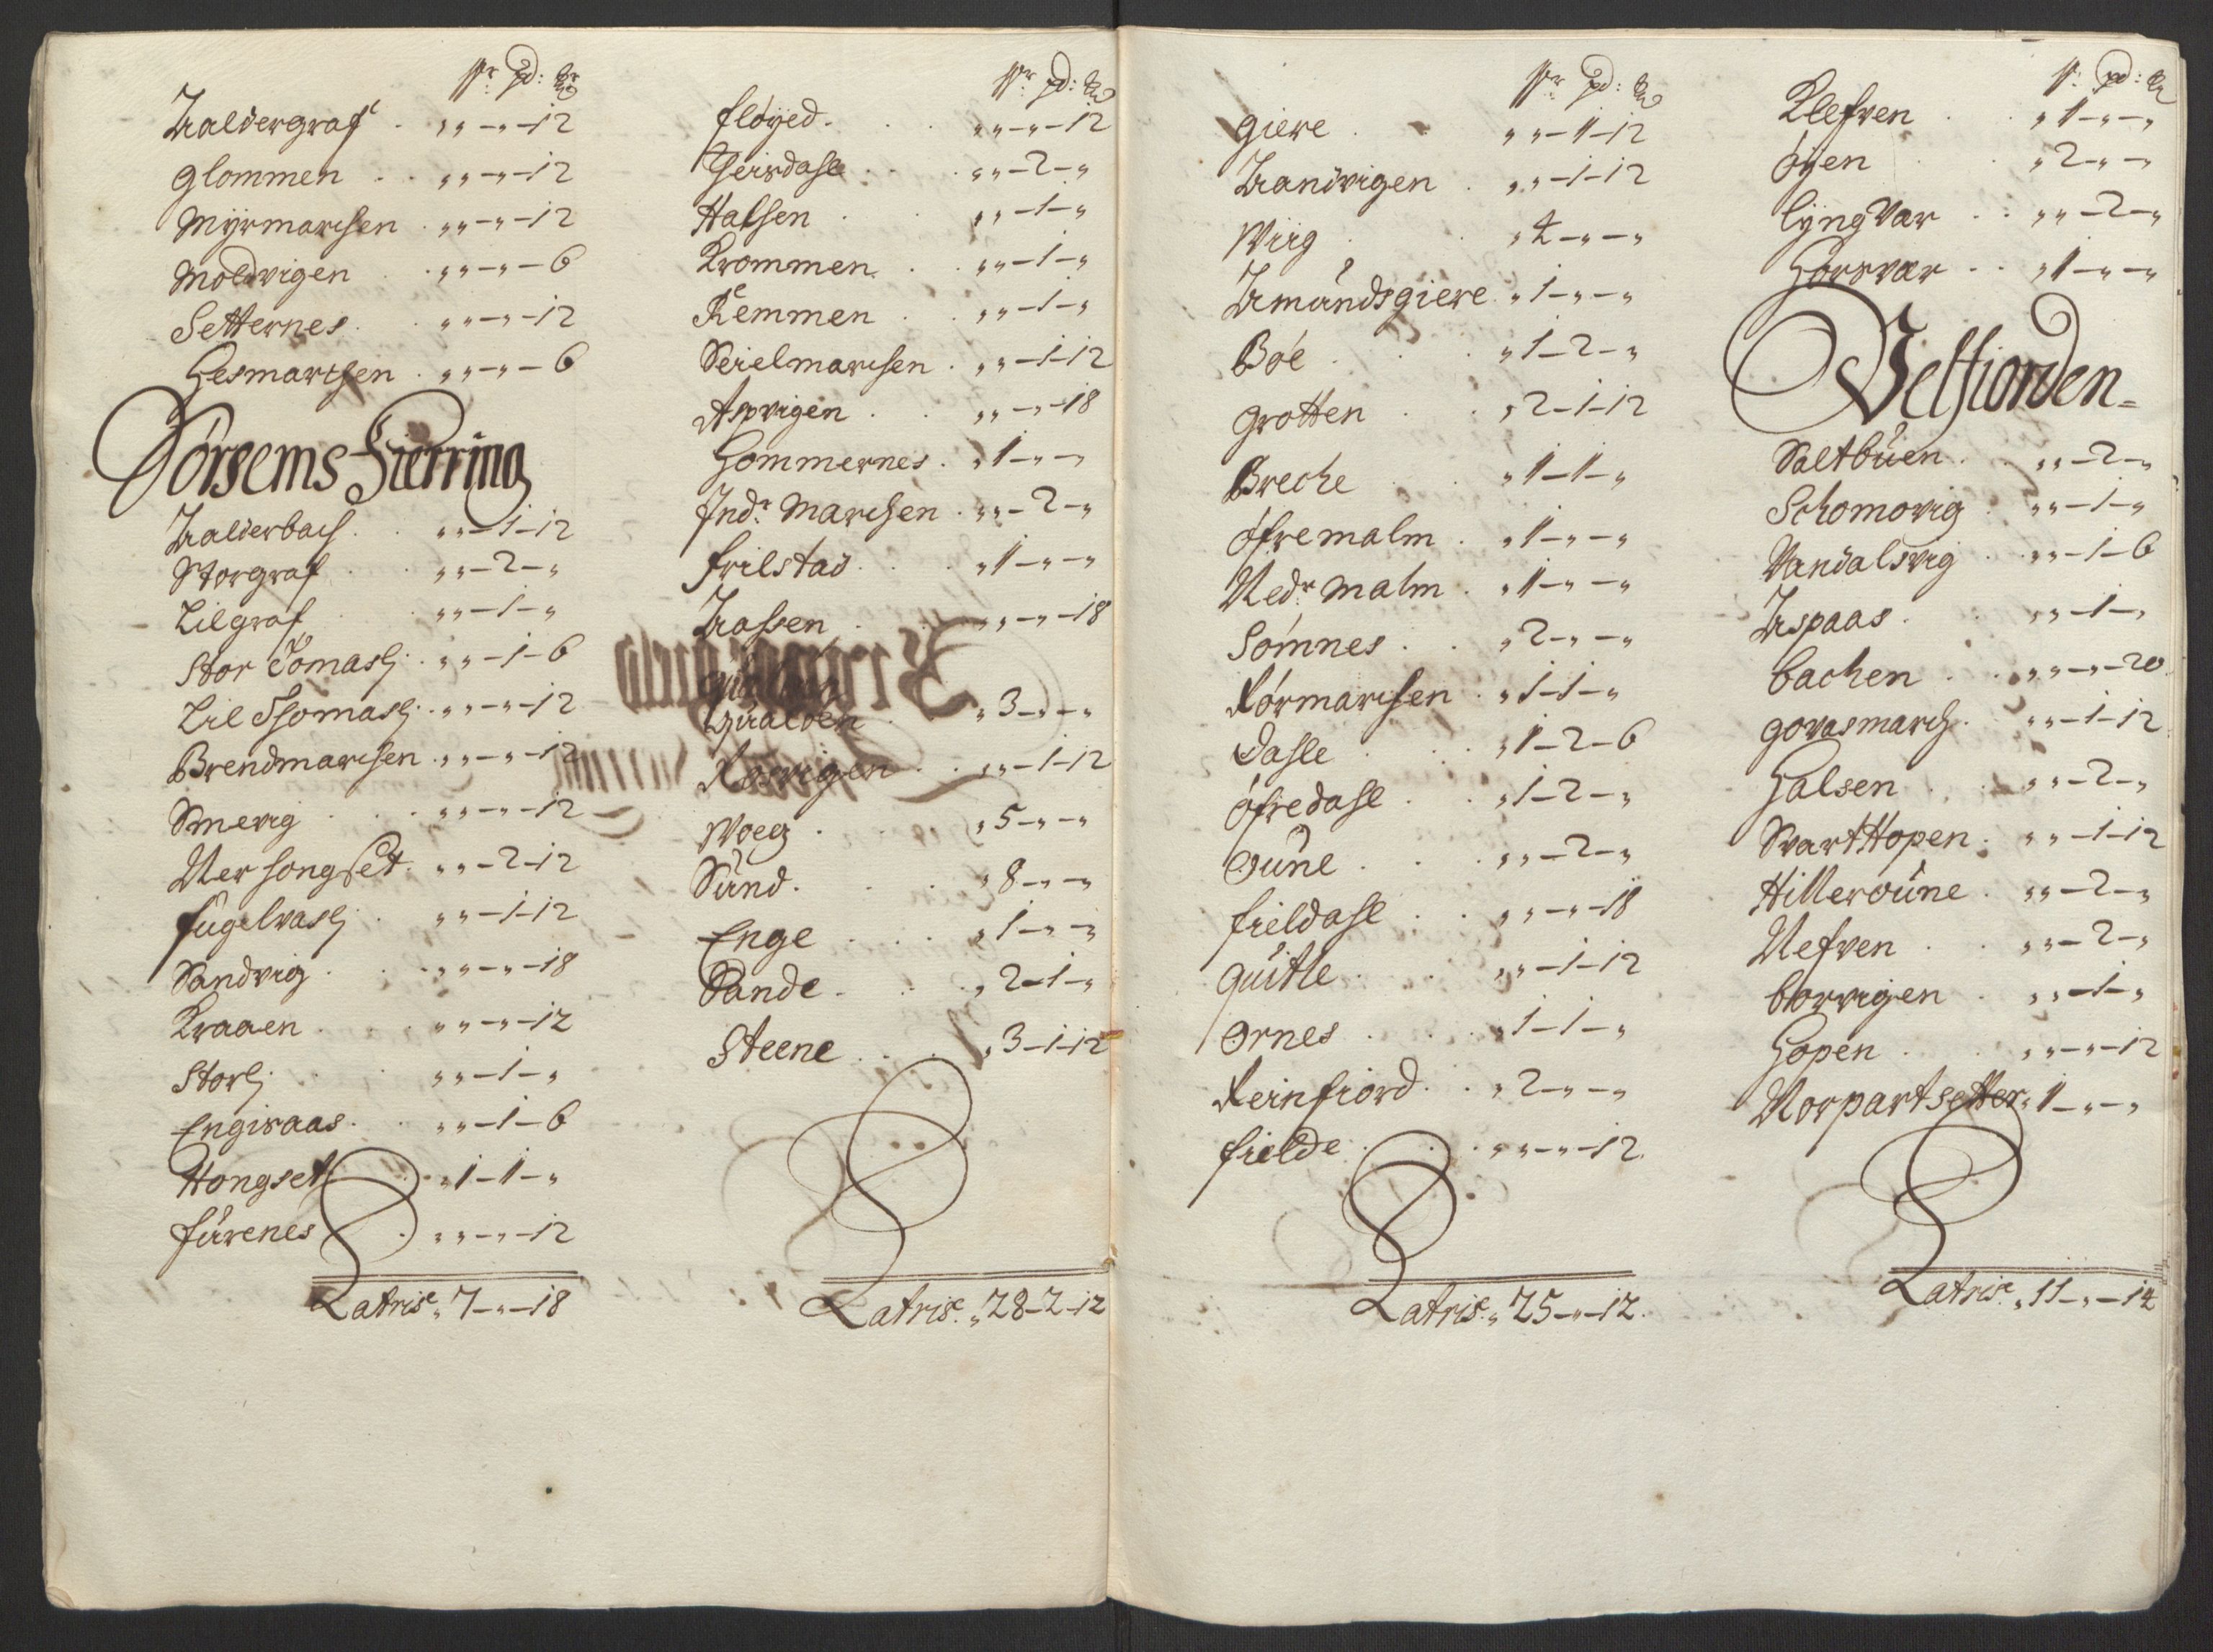 Pr pd: 
Zaldergraf . „ „ – „ – 12
Glommen . . „ „ – „ – 12
Myrmarchen . „ „ – „ – 12
Moldvigen . „ „ – „ – 6
Setternes . . „ „ – „ – 12
Hesmarchen . „ „ – „ – 6
Tørsems Fierring
Zalderbach . . „ „ – 1 – 12
Storgraf . . „ „ – 2 – „
Lilgraf . „ „ – 1 – „
Stor Tomaslj . „ „ – 1 – 6
Lil Thomaslj . „ „ – „ – 12
Brendmarchen . „ „ – „ – 12
Smevig . . „ „ – „ – 12
Ner songset . „ „ – 2 – 12
fugelvaslj . „ „ – 1 – 12
Sandvig . . „ „ – „ – 18
Kraaen . . „ „ – „ – 12
Storlj . . „ „ – 1 – „
Engisaas . . „ „ – 1 – 6
Hongset . „ 1 – 1 – „
furenes . „ „ – „ – 12
Latris „ 7 – „ – 18
Pr pd:
fløyed . . . „ „ – „ – 12
Heisdahl . . „ „ – 2 – „
Halsen . . „ „ – 1 – „
Krommen . . „ „ – 1 – „
Remmen . . „ „ – 1 – „
Seielmarchen . „ „ – 1 – 12
Aspvigen . . „ „ – „ – 18
Hommernes . „ 1 – „ – „
Indr Marchen . „ „ – 2 – „
frilstad . . „ 1 – „ – „
Zassen . . „ „ – „ – 18
Hualden . . „ 3 – „ – „
. . „ „ – 1 – 12
Woeg . . „ 5 – „ – „
Sund . . „ 8 – „ – „
Enge . . . „ 1 – „ – „
Sande . . „ 2 – 1 – „
Steene . . „ 3 – 1 – 12
Latris „ 28 – 2 – 12
Pr pd:
Giere . . „ „ – 1 – 12
Zandvigen . „ „ – 1 – 12
Wiig . . „ 4 – „ – „
Zmundsgiere . „ 1 – „ – „
Bøe . . . „ 1 – 2 – „
Grotten . . „ 2 – 1 – 12
Breche . . „ 1 – 1 – „
Øfremalm . „ 1 – „ – „
Nedr Malm . „ 1 – „ – „
Sømnes . . „ 2 – „ – „
Rørmarchen . „ 1 – 1 – „
Dahle . . „ 1 – 2 – 6
Øfredahl . . „ 1 – 2 – „
Oune . . . „ „ – 2 – „
fieldahl . . „ „ – „ – 18
Quitle . . „ „ – 1 – 12
Ornes . . . „ 1 – 1 – „
Reinfiord . . „ 2 – „ – „
fielde . . . „ „ – „ – 12
Latris „ 25 – „ – 12
P: pd:
Klefven . . „ 1 – „ – „
Øyen . . „ 2 – „ – „
LyngVær . . „ „ – 2 – „
Horsvær . . „ 1 – „ – „
Velfiorden
Saltbuen . . „ „ – 2 – „
Schomovig . „ „ – 1 – „
Vandalsvig . „ „ – 1 – 6
Zspaas . . „ „ – 1 – „
bachen . . „ „ – „ – 20
Govasmarch . „ „ – 1 – 12
Halsen . . „ „ – 2 – „
SvartHopen . „ „ – 1 – 12
Hilleroune . „ „ – 2 – „
Nefven . . „ „ – 2 – „
borvigen . „ „ – 1 – „
Hopen . . „ „ – „ – 12
Norpartsetter „ 1 – „ – „
Latris „ 11 – „ – 14